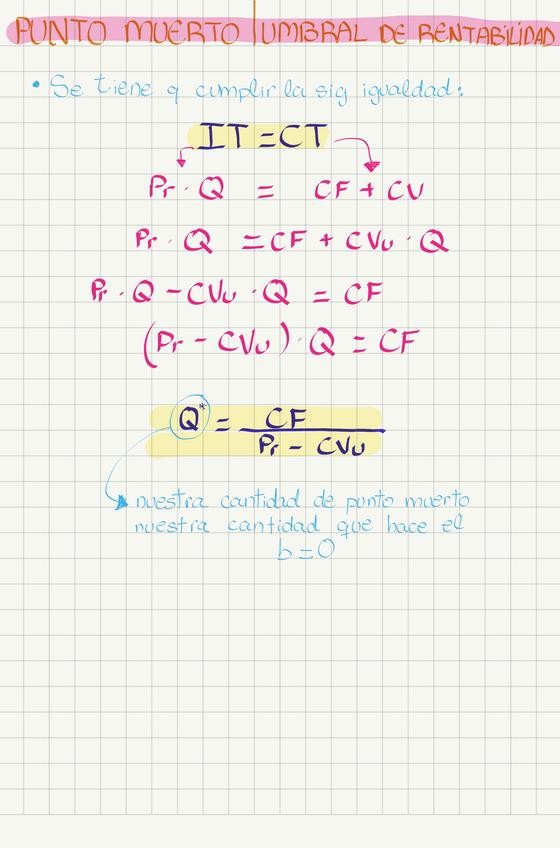 PUNTO MUERTO | UMBRAL DE RENTABILIDAD
• Se tiene q cumplir la sig igualdad:
IT = CT
Pr · Q = CF + CV
Pr · Q = CF + CVu · Q
Pr · Q - CVu · Q = CF
(Pr - CVu) · Q = CF
Q* = CF
Pr - CVu
nuestra cantidad de punto muerto
nuestra cantidad que hace el
b = 0